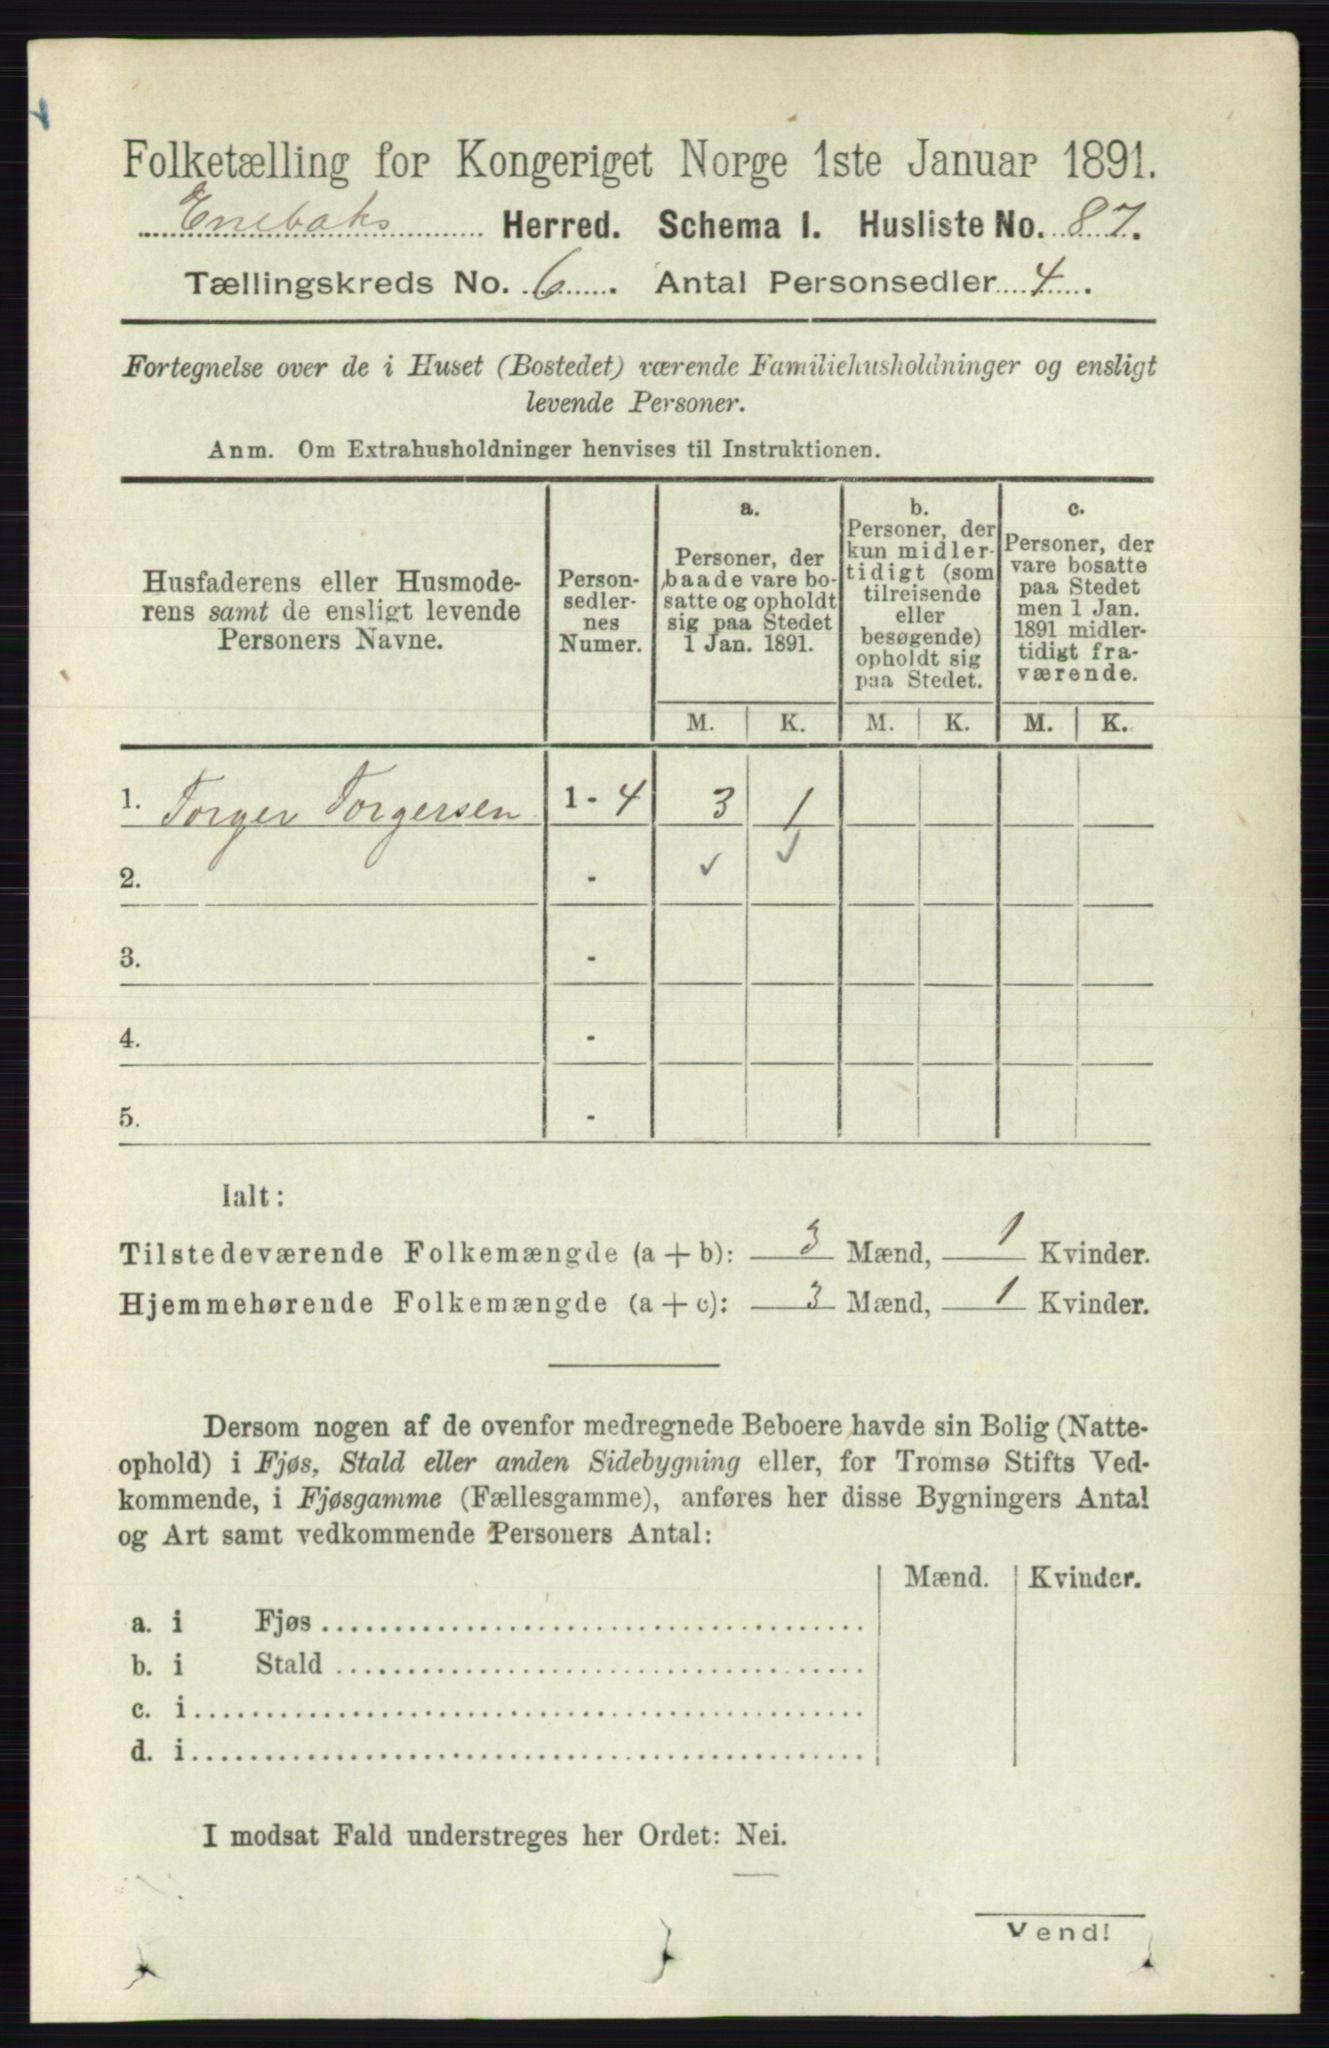 Folketælling for Kongeriget Norge 1ste Januar 1891.
Enebaks Herred. Schema I. Husliste No. 87.
Tællingskreds No. 6. Antal Personsedler 4.
Fortegnelse over de i Huset (Bostedet) værende Familiehusholdninger og ensligt
levende Personer.
Anm. Om Extrahusholdninger henvises til Instruktionen.
Husfaderens eller Husmode-
rens samt de ensligt levende
Personers Navne.
Person-
sedler-
nes
Numer.
a.
Personer, der
baade vare bo-
satte og opholdt
sig paa Stedet
1 Jan. 1891.
b.
Personer, der
kun midler-
tidigt (som
tilreisende
eller
besøgende)
opholdt sig
paa Stedet.
c.
Personer, der
vare bosatte
paa Stedet
men 1 Jan.
1891 midler-
tidigt fra-
værende.
M. K. M. K. M. K.
1. Torger Torgersen 1 - 4 3 1
2. - ✓ ✓
3. -
4. -
5. -
Ialt:
Tilstedeværende Folkemængde (a + b): 3 Mænd, 1 Kvinder.
Hjemmehørende Folkemængde (a + c): 3 Mænd, 1 Kvinder.
Dersom nogen af de ovenfor medregnede Beboere havde sin Bolig (Natte-
ophold) i Fjøs, Stald eller anden Sidebygning eller, for Tromsø Stifts Ved-
kommende, i Fjøsgamme (Fællesgamme), anføres her disse Bygningers Antal
og Art samt vedkommende Personers Antal:
Mænd. Kvinder.
a. i Fjøs
b. i Stald
c. i
d. i
I modsat Fald understreges her Ordet: Nei.
Vend!